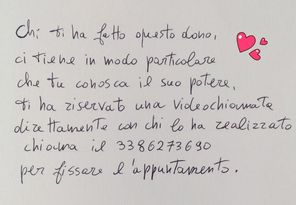 Chi ti ha fatto questo dono,
ci tiene in modo particolare
che tu conosca il suo potere,
ti ha riservato una videochiamata
direttamente con chi lo ha realizzato
chiama il 3386273690
per fissare l'appuntamento.